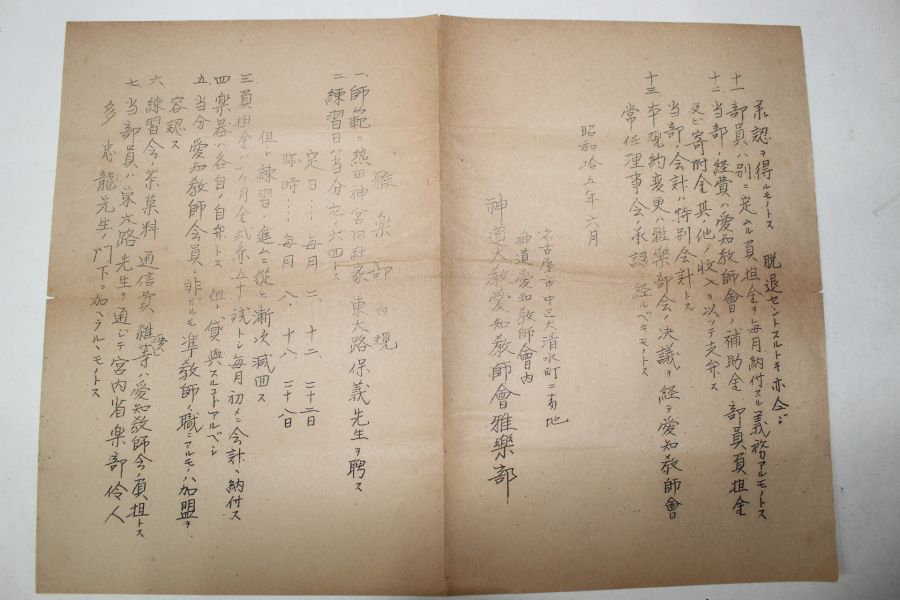 承認ヲ得ルモノトス 脱退セントスルトキ亦仝ジ
十一 部員ハ別ニ定ムル負担金ヲ毎月納付スル義務アルモノトス
十二 当部ノ経費ハ愛知教師會ノ補助金 部員負担金
及ビ寄附金其ノ他ノ收入ヲ以ッテ支弁ス
当部ノ会計ハ特別会計トス
十三 本規約変更ハ雅樂部会ノ決議ヲ経テ愛知教師會
常任理事会ノ承認ヲ経ルベキモノトス
昭和拾五年六月
名古屋市中区大清水町二番地
神道愛知教師會内
神道大教愛知教師會雅樂部
雅楽部内規
一、師範ニ熱田神宮旧社家 東大路保義先生ヲ聘ス
二、練習日ハ当分左ノ六回トス
定日…毎月 二、十二、二十二日
臨時…毎月 八、十八、二十八日
但シ練習ノ進ムニ從ヒ漸次減回ス
三、負担金ハ一ヶ月金弐円五十銭トシ毎月初メニ会計ヘ納付ス
四、楽器ハ各自ノ自弁トス 但シ貸與スルコトアルベシ
五、当分愛知教師会員ニ非ザルモ準教師ノ職ニアルモノハ加盟ヲ
容認ス
六、練習会ノ茶菓料 通信費 雑費等ハ愛知教師会ノ負担トス
七、当部員ハ東大路先生ヲ通ジテ宮内省楽部伶人
多忠龍先生ノ門下ニ加ヘラルヽモノトス